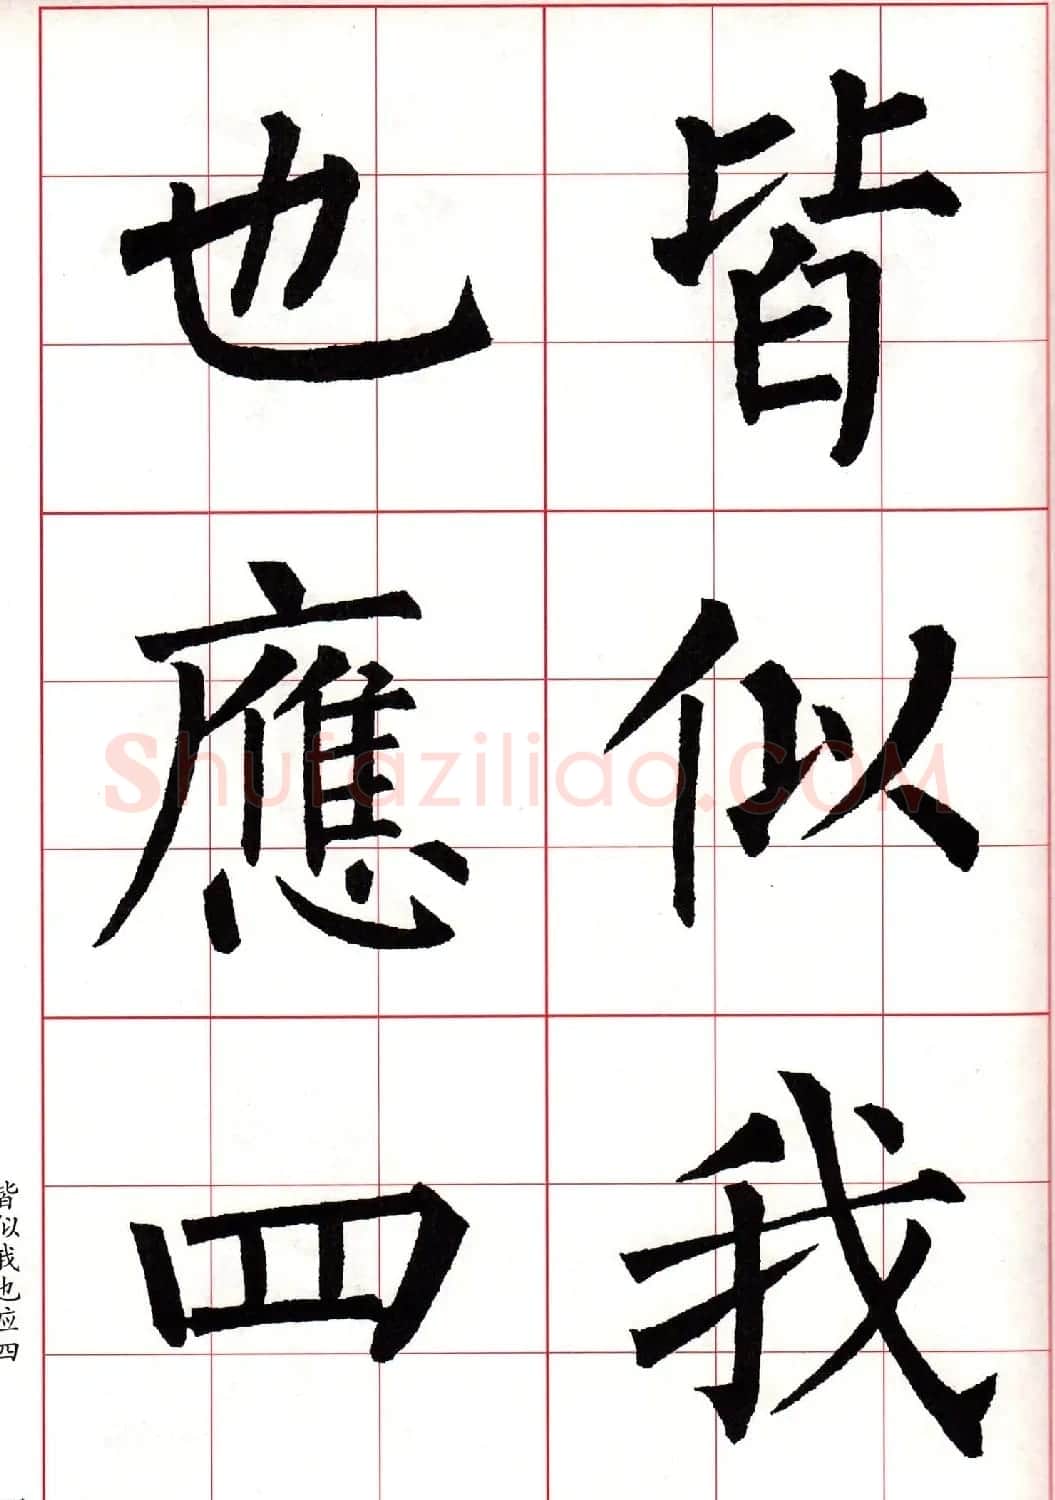 皆似我
也應四
皆似我也应四
Shufaziliao.COM